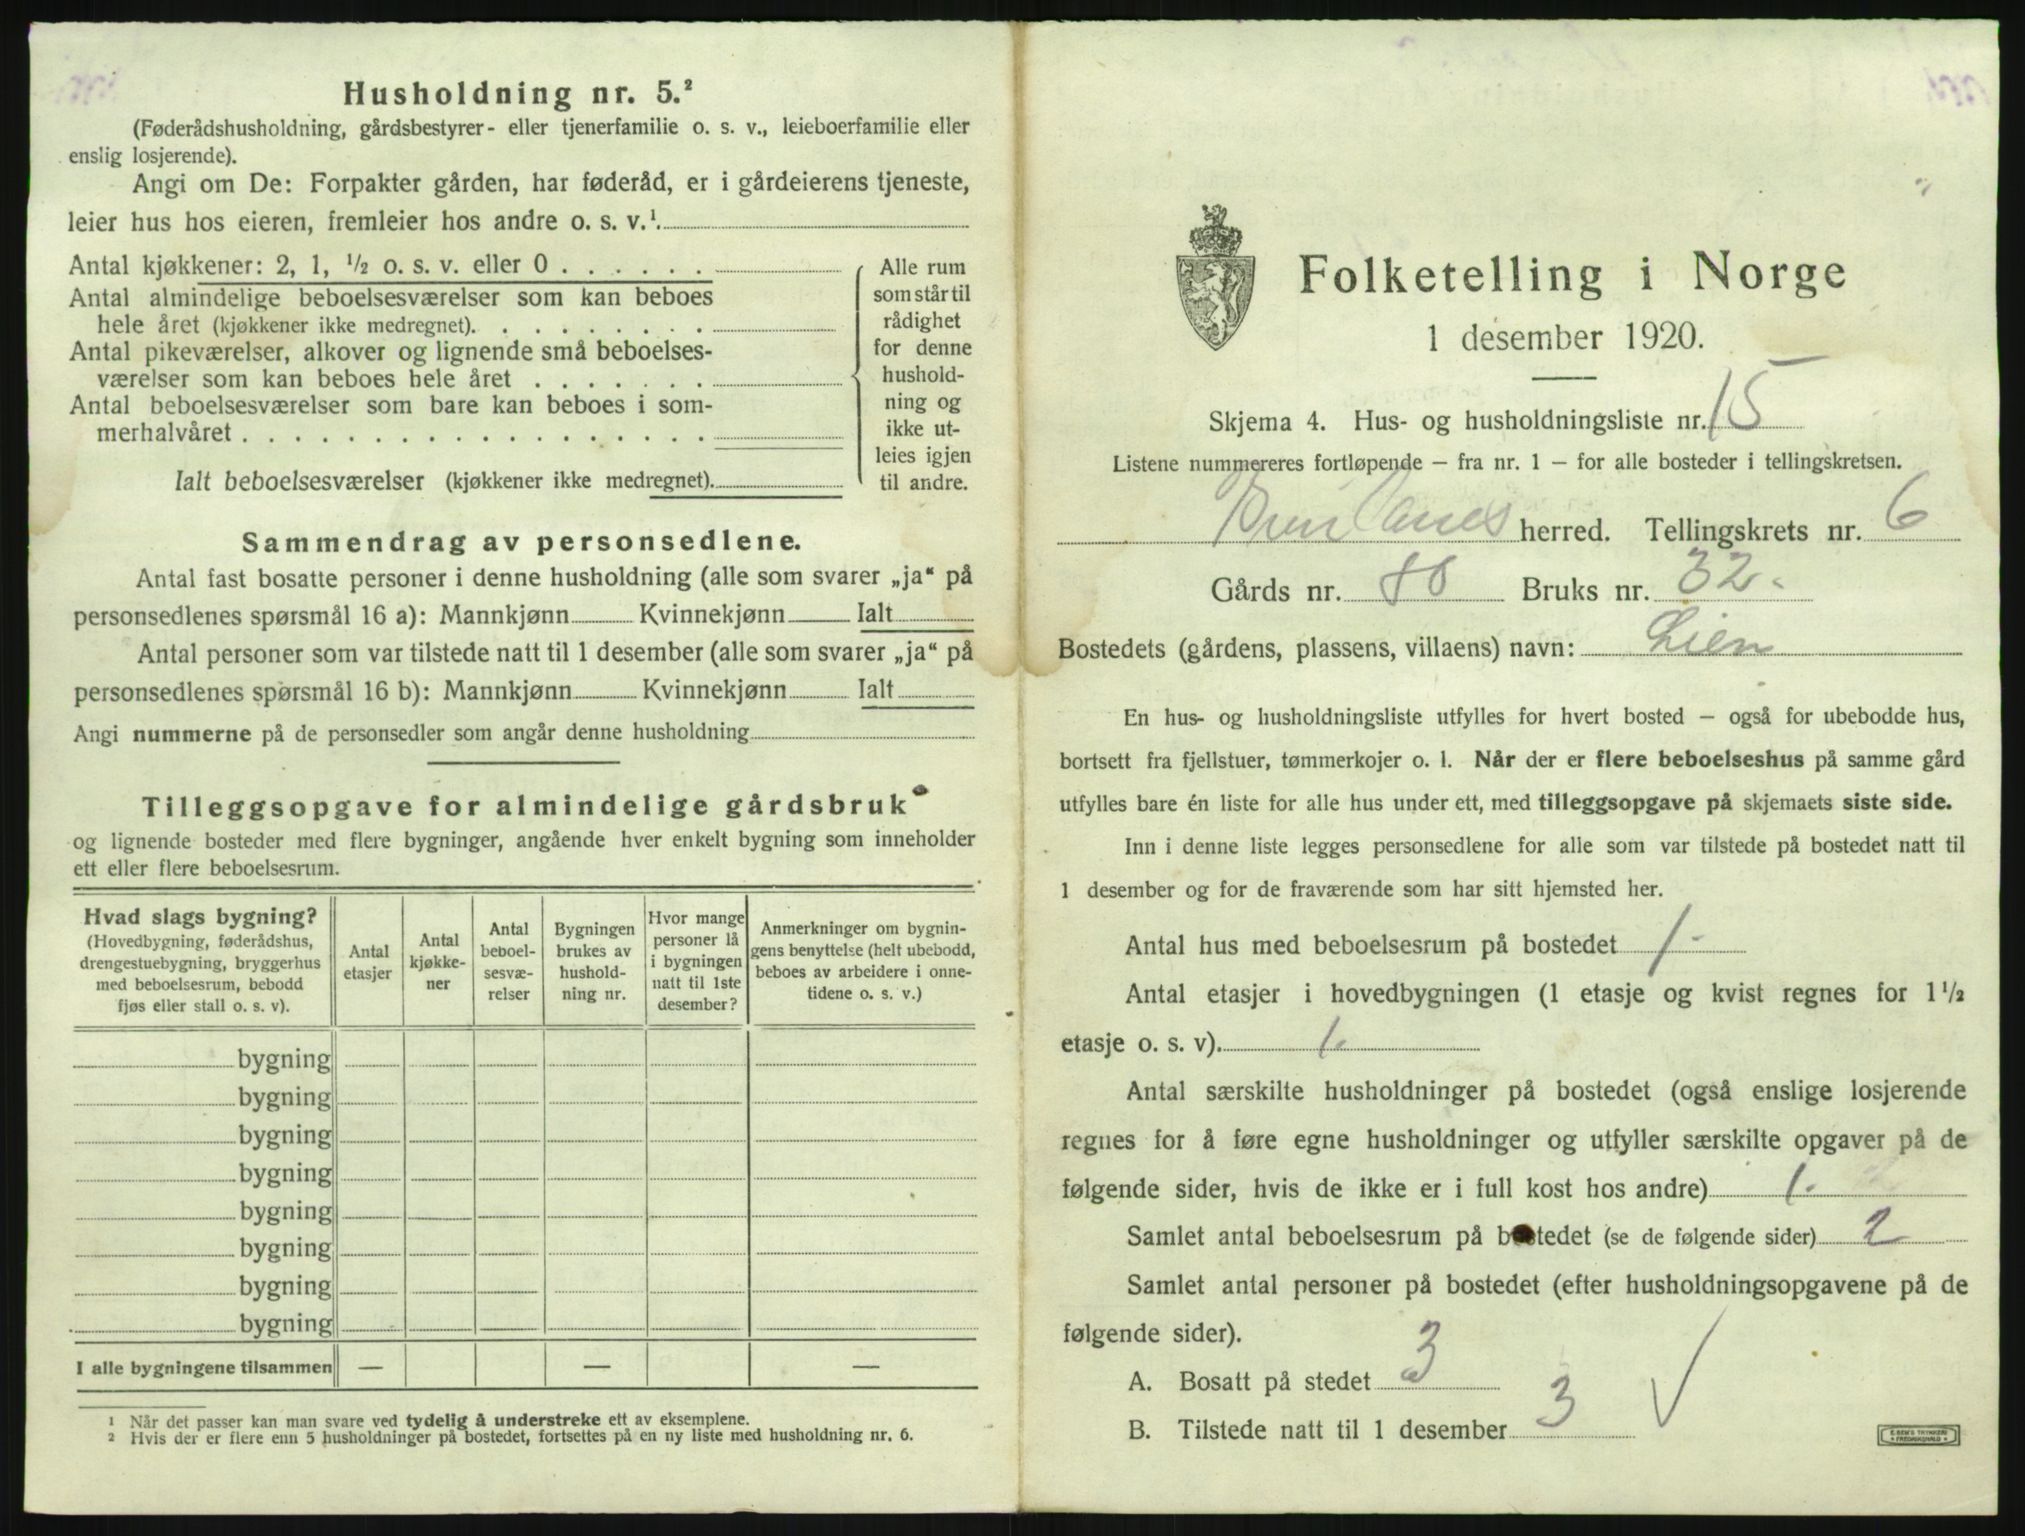 Husholdning nr. 5.²
(Føderådshusholdning, gårdsbestyrer- eller tjenerfamilie o. s. v., leieboerfamilie eller
enslig losjerende).
Angi om De: Forpakter gården, har føderåd, er i gårdeierens tjeneste,
leier hus hos eieren, fremleier hos andre o. s. v.¹.
Antal kjøkkener: 2, 1, ½ o. s. v. eller 0 . . . . . .
Antal almindelige beboelsesværelser som kan beboes
hele året (kjøkkener ikke medregnet). . . . . . . . .
Antal pikeværelser, alkover og lignende små beboelses-
værelser som kan beboes hele året . . . . . . .
Antal beboelsesværelser som bare kan beboes i som-
merhalvåret . . . . . . . . . . . . . . . . . .
Ialt beboelsesværelser (kjøkkener ikke medregnet).
Alle rum
som står til
rådighet
for denne
hushold-
ning og
ikke ut-
leies igjen
til andre.
Sammendrag av personsedlene.
Antal fast bosatte personer i denne husholdning (alle som svarer „ja“ på
personsedlenes spørsmål 16 a): Mannkjønn Kvinnekjønn Ialt
Antal personer som var tilstede natt til 1 desember (alle som svarer „ja“ på
personsedlenes spørsmål 16 b): Mannkjønn Kvinnekjønn Ialt
Angi nummerne på de personsedler som angår denne husholdning
Tilleggsopgave for almindelige gårdsbruk
og lignende bosteder med flere bygninger, angående hver enkelt bygning som inneholder
ett eller flere beboelsesrum.
Hvad slags bygning?
(Hovedbygning, føderådshus,
drengestuebygning, bryggerhus
med beboelsesrum, bebodd
fjøs eller stall o. s. v).
Antal
etasjer
Antal
kjøkke-
ner
Antal
beboel-
sesvæ-
relser
Bygningen
brukes av
hushold-
ning nr.
Hvor mange
personer lå
i bygningen
natt til 1ste
desember?
Anmerkninger om bygnin-
gens benyttelse (helt ubebodd,
beboes av arbeidere i onne-
tidene o. s. v.)
bygning
bygning
bygning
bygning
bygning
bygning
bygning
bygning
I alle bygningene tilsammen — — —
¹ Når det passer kan man svare ved tydelig å understreke ett av eksemplene.
² Hvis der er flere enn 5 husholdninger på bostedet, fortsettes på en ny liste med husholdning nr. 6.
Folketelling i Norge
1 desember 1920.
Skjema 4. Hus- og husholdningsliste nr. 15
Listene nummereres fortløpende — fra nr. 1 — for alle bosteder i tellingskretsen.
Brunlanes herred. Tellingskrets nr. 6
Gårds nr. 80 Bruks nr. 32.
Bostedets (gårdens, plassens, villaens) navn: Lien
En hus- og husholdningsliste utfylles for hvert bosted — også for ubebodde hus,
bortsett fra fjellstuer, tømmerkojer o. l. Når der er flere beboelseshus på samme gård
utfylles bare én liste for alle hus under ett, med tilleggsopgave på skjemaets siste side.
Inn i denne liste legges personsedlene for alle som var tilstede på bostedet natt til
1 desember og for de fraværende som har sitt hjemsted her.
Antal hus med beboelsesrum på bostedet 1.
Antal etasjer i hovedbygningen (1 etasje og kvist regnes for 1½
etasje o. s. v). 1.
Antal særskilte husholdninger på bostedet (også enslige losjerende
regnes for å føre egne husholdninger og utfyller særskilte opgaver på de
følgende sider, hvis de ikke er i full kost hos andre) 1.
Samlet antal beboelsesrum på bostedet (se de følgende sider) 2
Samlet antal personer på bostedet (efter husholdningsopgavene på de
følgende sider).
A. Bosatt på stedet 3
B. Tilstede natt til 1 desember 3